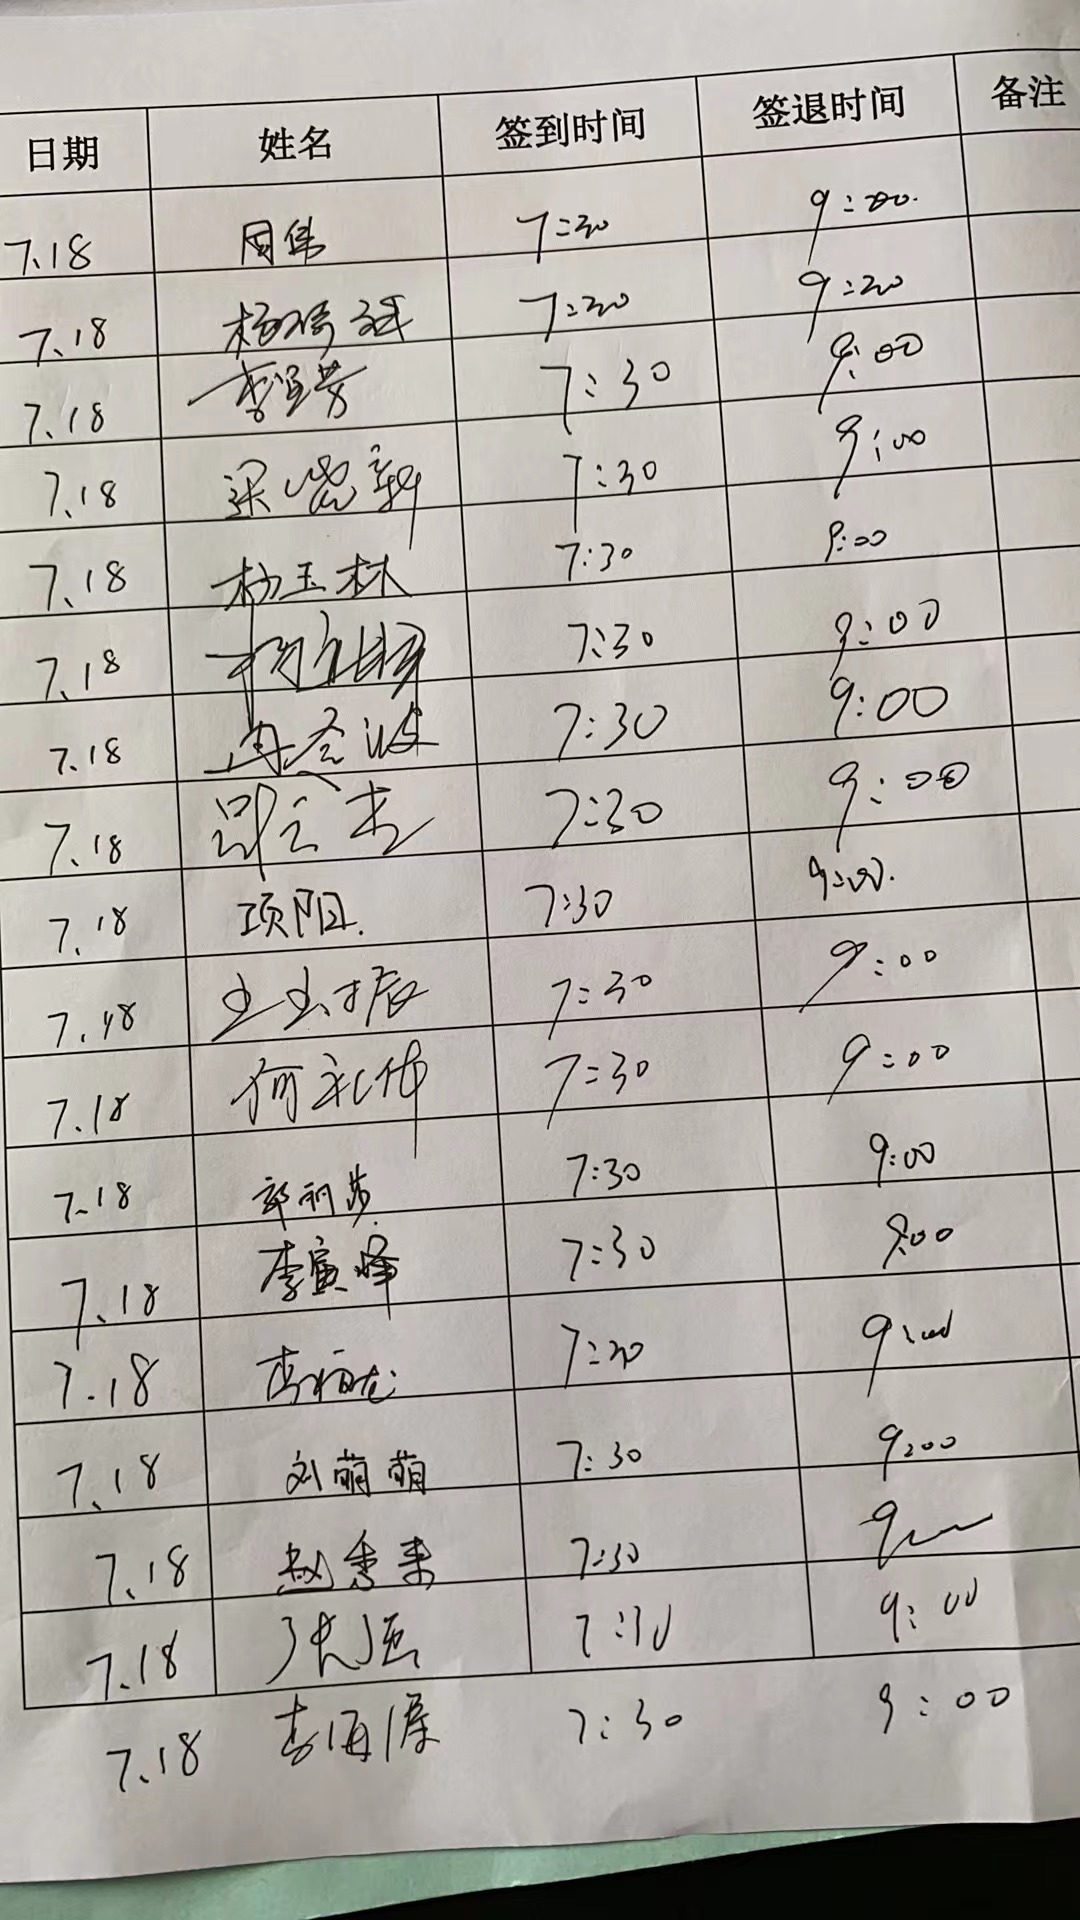 日期 姓名 签到时间 签退时间 备注
7.18 周伟 7:30 9:00.
7.18 7:30 9:20
7.18 7:30 9:00
7.18 7:30 9:00
7.18 杨玉林 7:30 9:00
7.18 7:30 9:00
7.18 7:30 9:00
7.18 7:30 9:00
7.18 项阳. 7:30 9:00.
7.18 7:30 9:00
7.18 何礼伟 7:30 9:00
7.18 郭丽莎 7:30 9:00
7.18 李寅峰 7:30 9:00
7.18 7:30 9:00
7.18 刘萌萌 7:30 9:00
7.18 赵秀来 7:30
7.18 张强 7:30 9:00
7.18 7:30 9:00